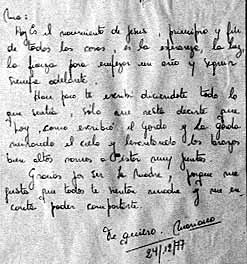 Ma:
Hoy es el nacimiento de Jesus, principio y fin
de todas las cosas, es la esperanza, la luz,
la fuerza para empezar un año y seguir
siempre adelante.
Hace poco te escribí diciendote todo lo
que sentía, sólo me resta decirte que
hoy, como escribió el gordo y la gorda
mirando el cielo y levantando los brazos
bien altos vamos a estar muy juntos.
Gracias por ser la Madre, porque me
gusta que todos te sientan madre y me en-
canta poder compartirte.
Te quiero. Mariano
24/12/77